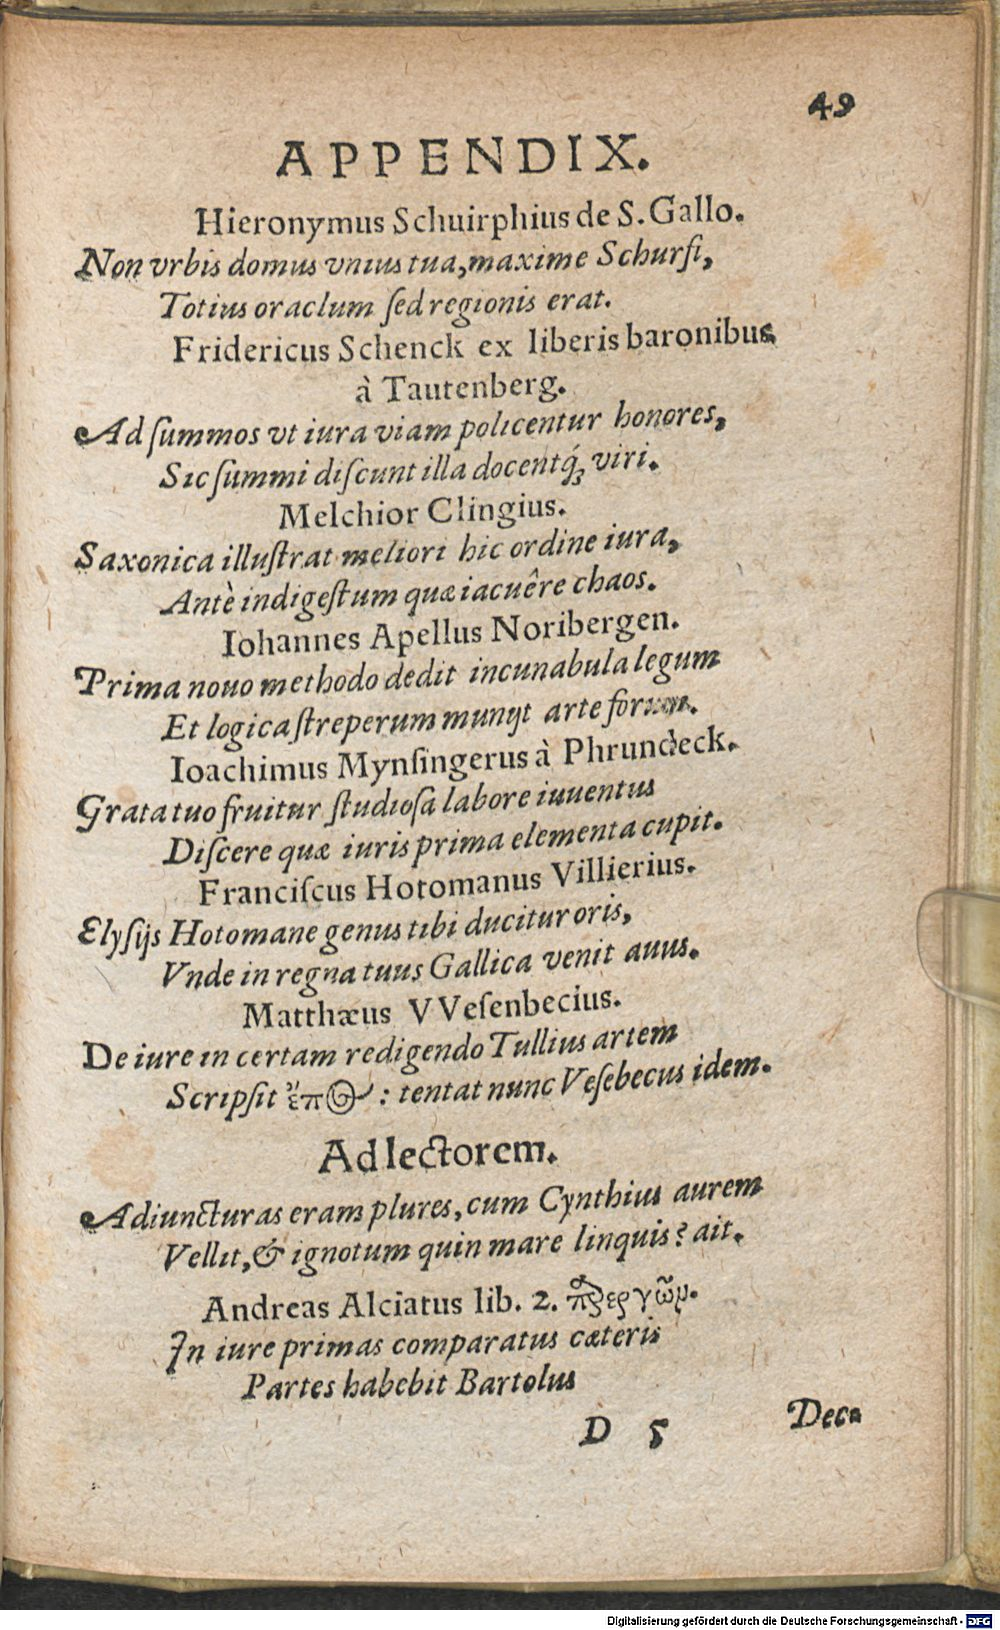 49
APPENDIX.
Hieronymus Schuirphius de S. Gallo.
Non vrbis domus vnius tua, maxime Schurſi,
Totius oraclum ſed regionis erat.
Fridericus Schenck ex liberis baronibus
à Tautenberg.
Ad ſummos vt iura viam policentur honores,
Sic ſummi diſcunt illa docentq́; viri.
Melchior Clingius.
Saxonica illuſtrat meliori hic ordine iura,
Antè indigeſtum quæ iacuêre chaos.
Iohannes Apellus Noribergen.
Prima nouo methodo dedit incunabula legum
Et logica ſtreperum munijt arte forum.
Ioachimus Mynſingerus à Phrundeck.
Grata tuo fruitur ſtudioſa labore iuuentus
Diſcere quæ iuris prima elementa cupit.
Franciſcus Hotomanus Villierius.
Elyſijs Hotomane genus tibi ducitur oris,
Vnde in regna tuus Gallica venit auus.
Matthæus VVeſenbecius.
De iure in certam redigendo Tullius artem
Scripſit ἔπος : tentat nunc Veſebecus idem.
Ad lectorem.
Adiuncturas eram plures, cum Cynthius aurem
Vellit, & ignotum quin mare linquis? ait.
Andreas Alciatus lib. 2. παρεργῶν.
In iure primas comparatus cæteris
Partes habebit Bartolus
D 5
Dece
Digitalisierung gefördert durch die Deutsche Forschungsgemeinschaft - DFG